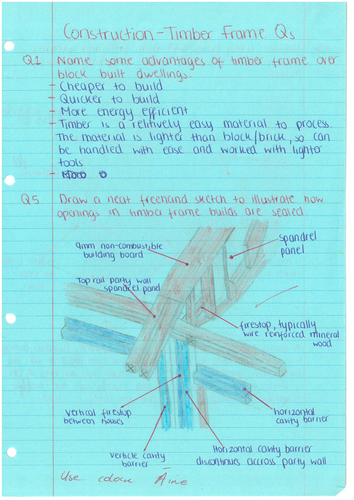 Construction - Timber Frame Qs
Q1 Name some advantages of timber frame over
block built dwellings.
- Cheaper to build
- Quicker to build
- More energy efficient
- Timber is a relitively easy material to process.
The material is lighter than block/brick, so can
be handled with ease and worked with lighter
tools
Q5 Draw a neat freehand sketch to illustrate how
openings in timber frame builds are sealed.
9mm non-combustible
building board
spandrel
panel
Top rail party wall
spandrel panel
firestop, typically
wire reinforced mineral
wood
vertical firestop
between houses
horizontal
cavity barrier
verticle cavity
barrier
Horizontal cavity barrier
discontinues accross party wall
Use colour Áine